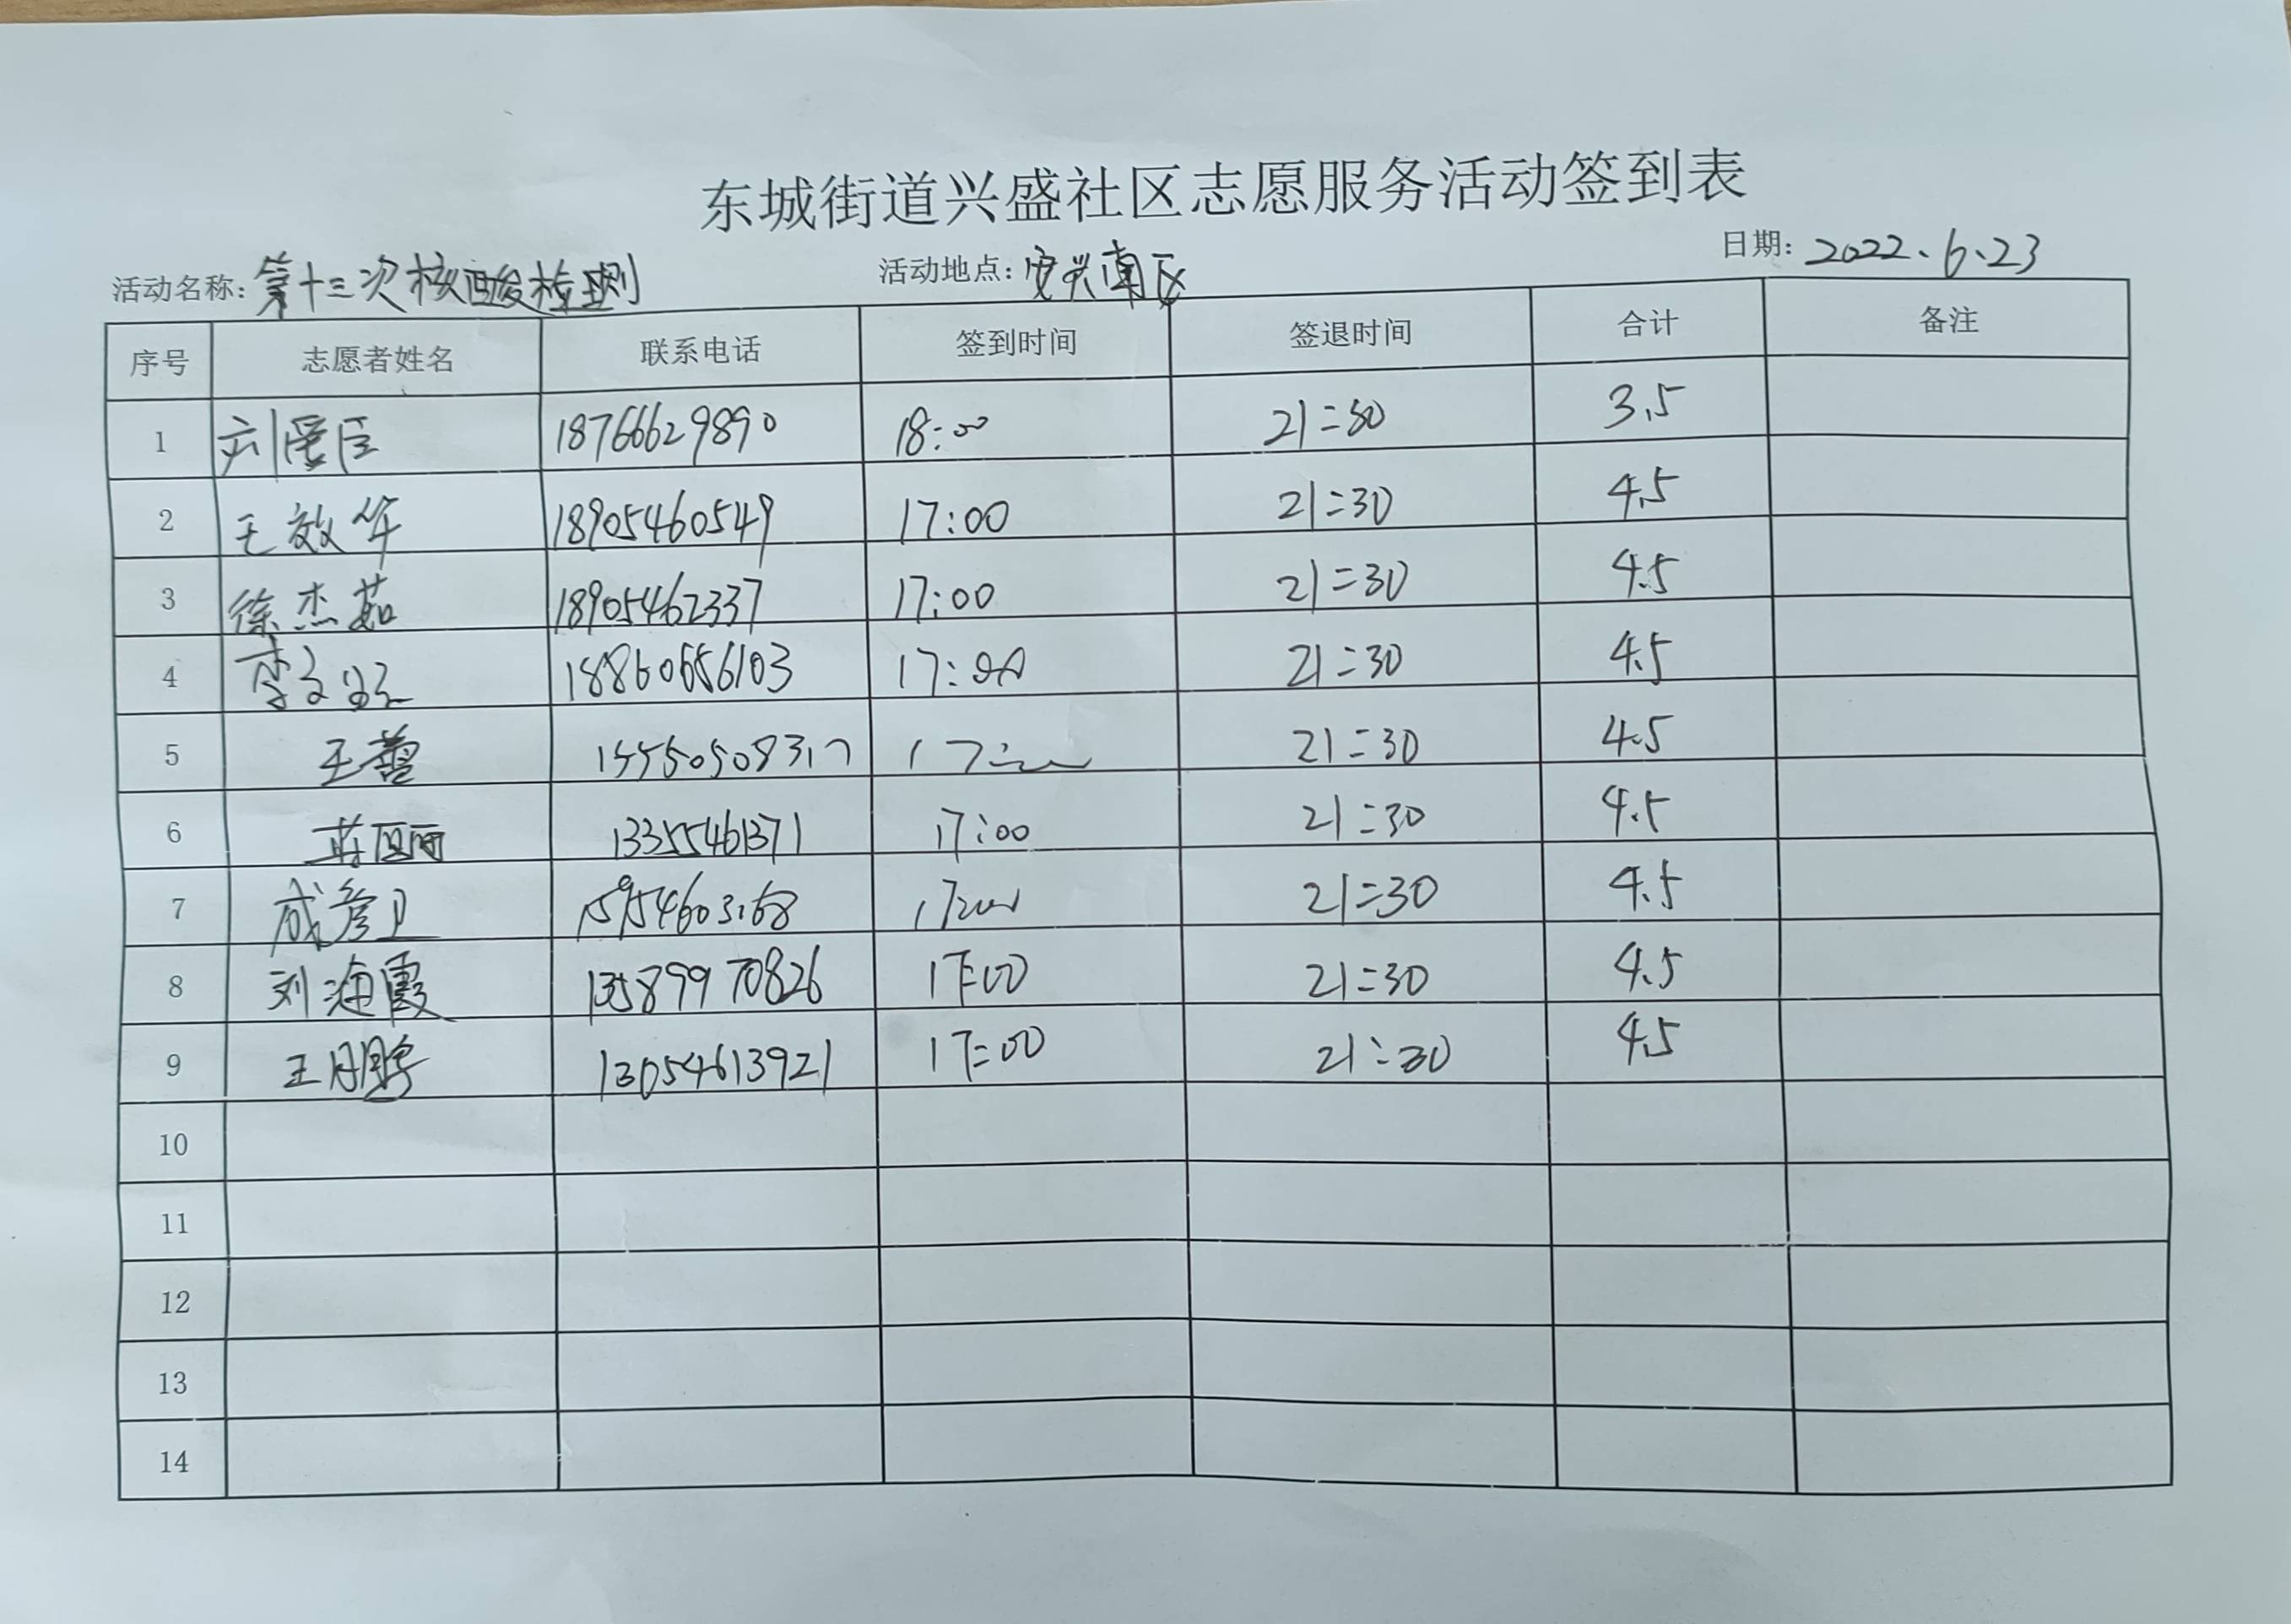 东城街道兴盛社区志愿服务活动签到表
活动名称:第十三次核酸检测 活动地点:安兴南区 日期:2022.6.23
序号 志愿者姓名 联系电话 签到时间 签退时间 合计 备注
1 刘 臣 18766629890 18:00 21:30 3.5
2 王效华 18905460549 17:00 21:30 4.5
3 徐杰茹 18905462337 17:00 21:30 4.5
4 李文 17:00 21:30 4.5
5 王蕾 21:30 4.5
6 丽 13355461371 17:00 21:30 4.5
7 成彦卫 15954603168 21:30 4.5
8 刘海霞 13589970826 17:00 21:30 4.5
9 王月鹏 13054613921 17:00 21:30 4.5
10
11
12
13
14